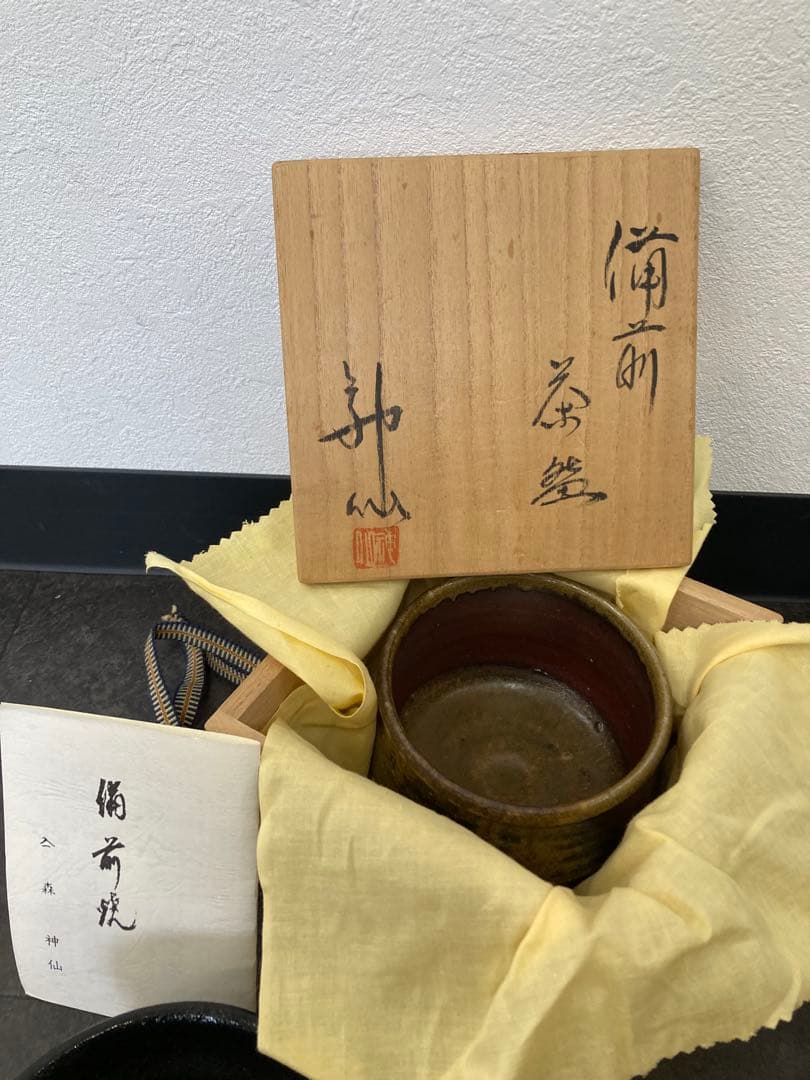 備前
茶盌
神仙
備前焼
森 神仙